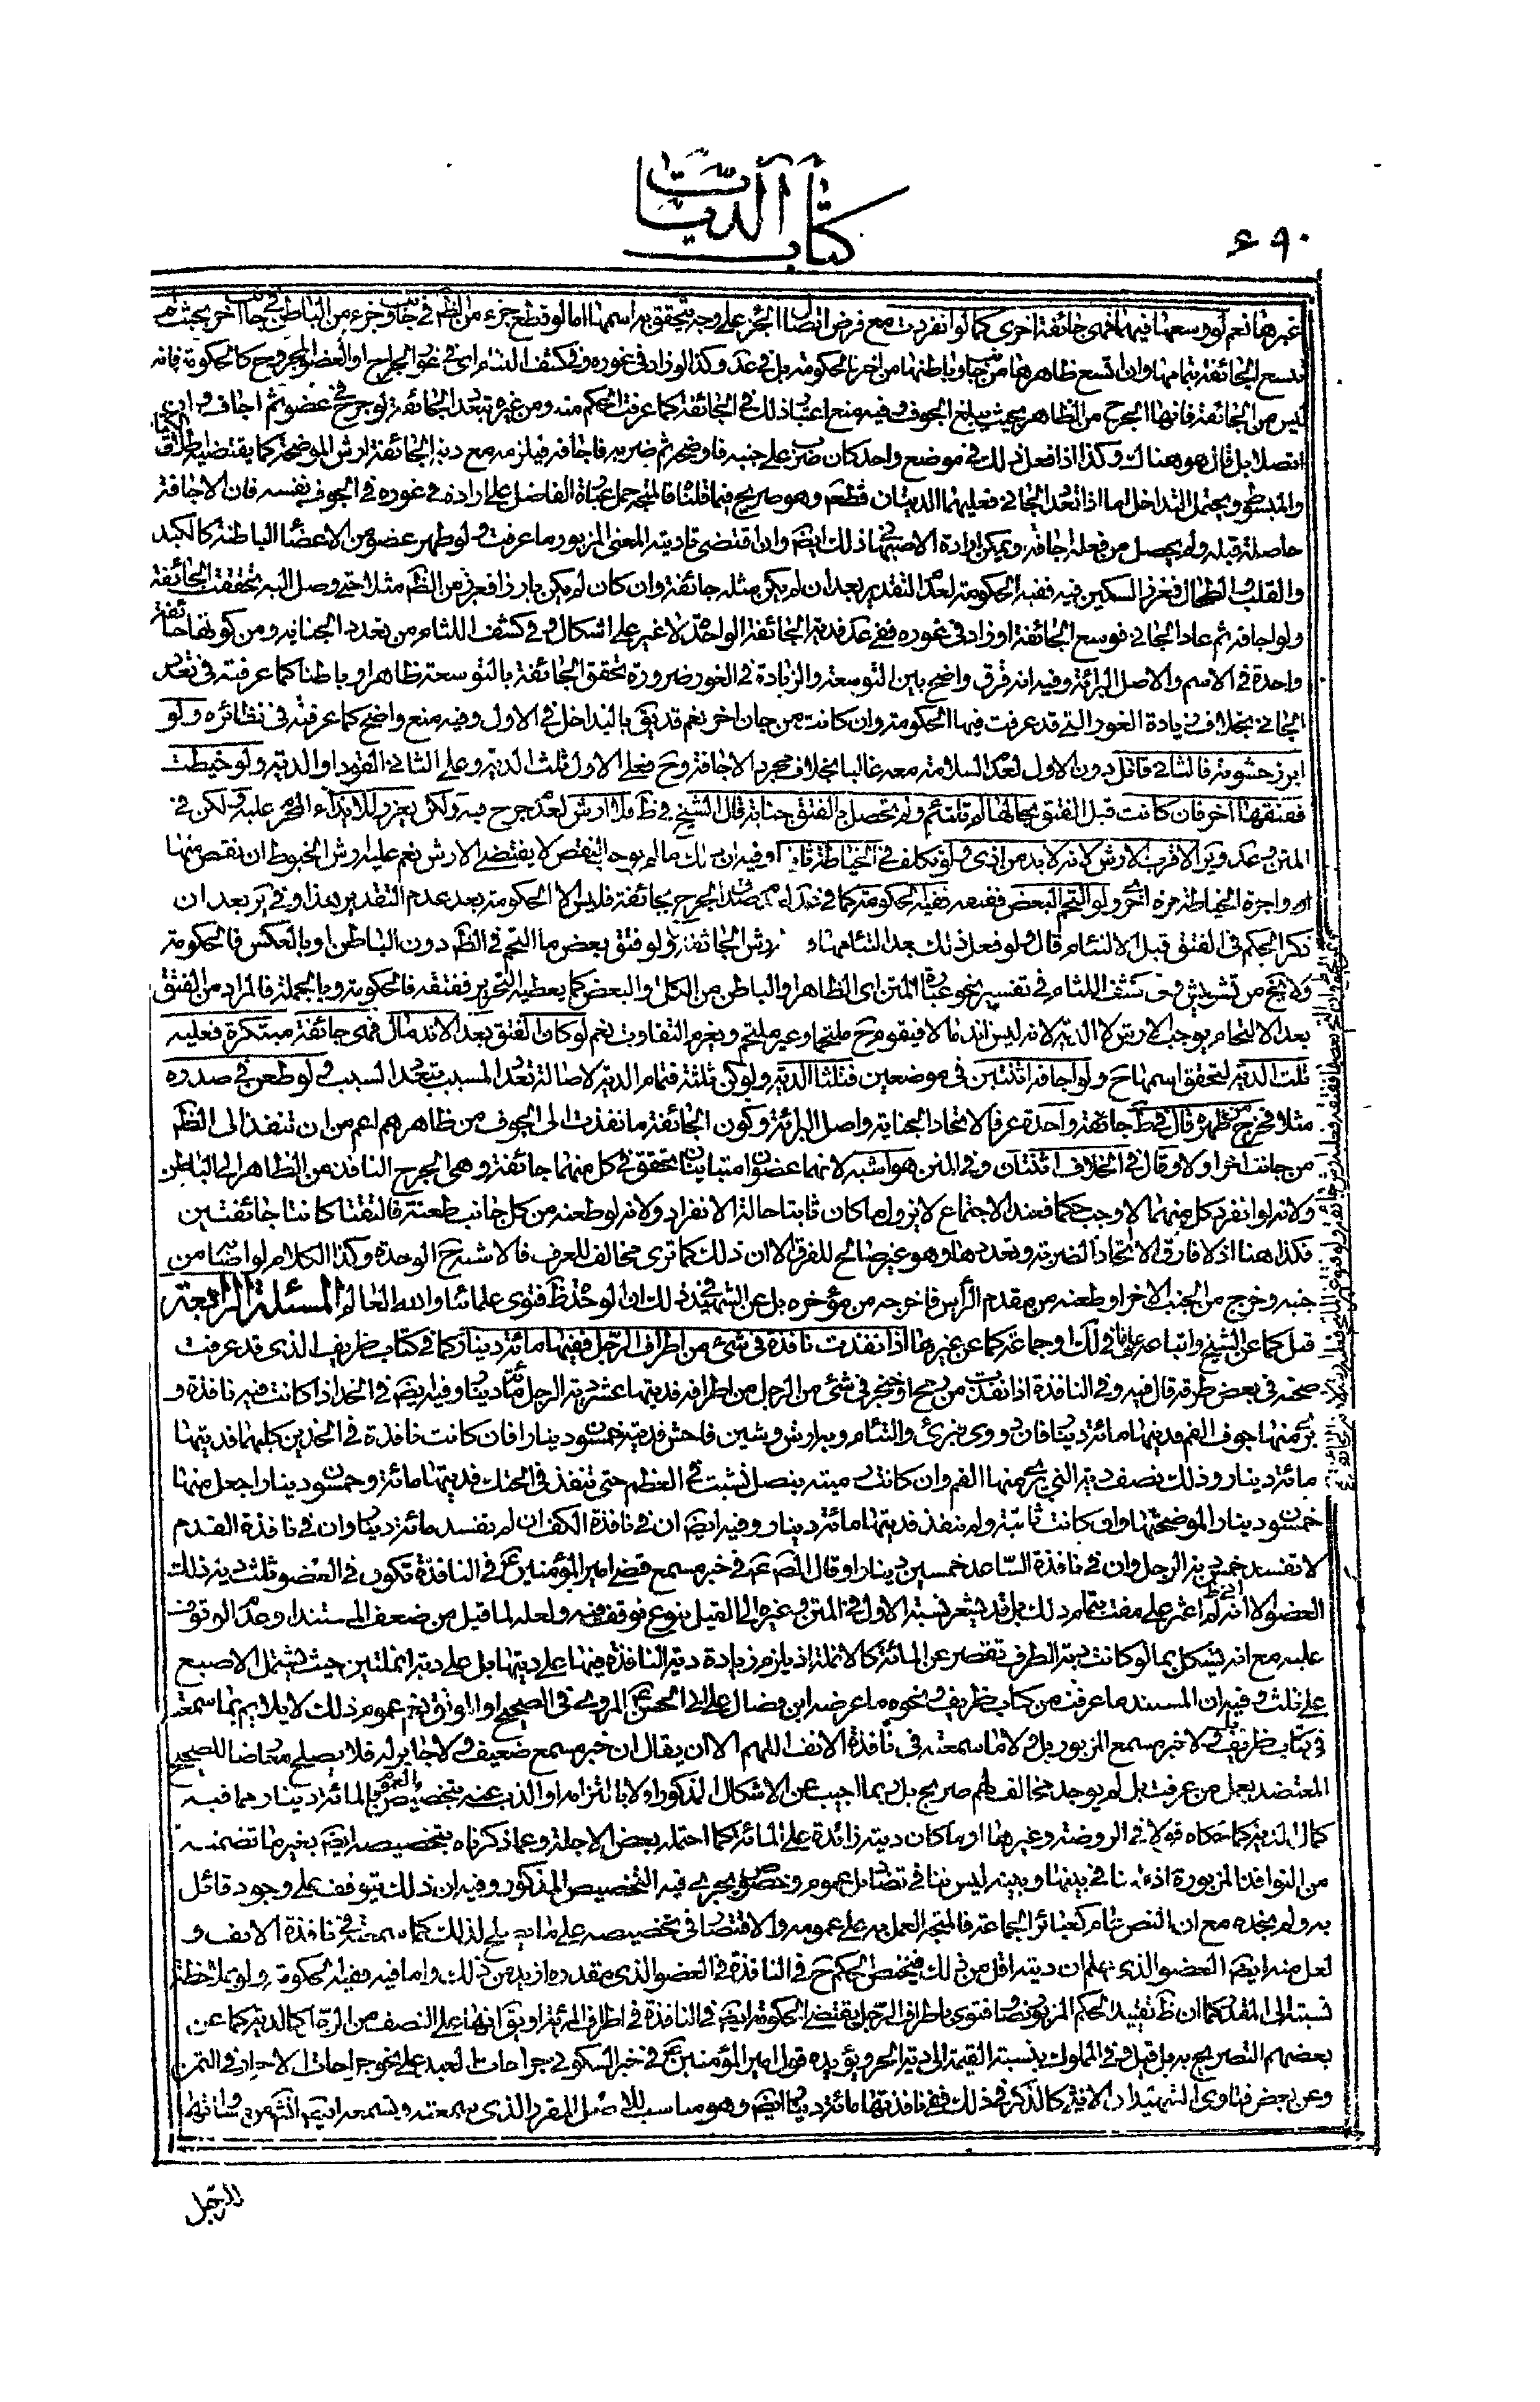 كتاب الديات
۶۹۰
غيرها نعم لو وسعها فيهما فهي جائفة اخرى كما لو انفردت مع فرض اتصال الجزء على وجه يتحقق به اسمها اما لو قطع جزء من الظم في جانب وجزء من الباطن في جانب اخر بحيث لم
تتسع الجائفة بتمامها وان اتسع ظاهرها من جانب وباطنها من اخر فالحكومة بل في عد وكذا لو زاد في غوره وفي كشف اللثام اى في غور الجراح او العضو المجروح كالحكومة فانه
ليس من الجائفة فانها الجرح من الظاهر بحيث يبلغ الجوف وفيه منع اعتبار ذلك في الجائفة كما عرفت الحكم منه ومن غيره بتعدد الجائفة لو جرح في عضو ثم اجاف وان
اتصلا بل قال هو هناك وكذا اذا فعل ذلك في موضع واحد كان ضرب على جنبه فاوضحه ثم ضربه فاجافه فيلزمه مع دية الجائفة ارش الموضحة كما يقتضيه اطلاق
والمبسوط ويحتمل التداخل اما اذا تعدد الجاني فعليهما الديتان قطعا وهو صريح فيما قلناه فالمتجه حمل عبارة الفاضل على ارادة في غوره في الجوف نفسه فان الاجافة
حاصلة قبله ولم يحصل من فعله اجافة ويمكن ارادة الاصبهاني ذلك ايضا وان اقتضى تاديته المعنى المزبور وما عرفت ولو ظهر عضو من الاعضاء الباطنة كالكبد
والقلب والطحال فغرز السكين فيه ففيه الحكومة لعدم التقدير بعد ان لم يكن مثله جائفة وان كان لم يكن بارزا فغرز من الظم مثلا حتى وصل اليه تحققت الجائفة
ولو اجافه ثم عاد الجاني فوسع الجائفة او زاد في غوره ففي عد فدية الجائفة الواحدة لا غير على اشكال وفي كشف اللثام من تعدد الجناية ومن كونها جائفة
واحدة في الاسم والاصل البرائة وفيه انه فرق واضح بين التوسعة والزيادة في الغور ضرورة تحقق الجائفة بالتوسعة ظاهرا وباطنا كما عرفته في تعدد
الجاني بخلاف زيادة الغور التي قد عرفت فيها الحكومة وان كانت من جان اخر نعم قد يق بالتداخل في الاول وفيه منع واضح كما عرفته في نظائره ولو
ابرز حشوته فالثاني قاتل دون الاول لعدم السلامة معه غالبا بخلاف مجرد الاجافة وح فعلى الاول ثلث الدية وعلى الثاني القود او الدية ولو خيطت
ففتقها اخر فان كانت قبل الفتق بحالها لم تلتئم ولم تحصل بالفتق جناية قال الشيخ في ظ فلا ارش لعدم جرح فيه ولكن يعزر للايذاء المحرم عليه ولكن في
المتن وعد ويرا لاقرب الارش لانه لابد من اذى ولو تكلف في الخياطة ثانيا وفيه ان ذلك ما لم يوجب النقص لا يقتضي الارش نعم عليه ارش الخيوط ان نقص منها
او واجرة الخياطة مرة اخرى ولو التحم البعض ففتقه ففيه الحكومة كما في عد لعدم صدق الجرح بجائفة فليس الا الحكومة بعد عدم التقدير بهذا وفي ير بعد ان
ذكر الحكم في الفتق قبل الالتئام قال ولو فعل ذلك بعد التئامها و ارش الجائفة ولو فتق بعض ما التحم في الظم دون الباطن او بالعكس فالحكومة
ولا يخ من تشويش وعن كشف اللثام في تفسير نحو عبارة المتن اى الظاهر او الباطن من الكل او البعض كما يعطيه التحرير ففتقه فالحكومة وبالجملة فالمراد من الفتق
بعد الالتحام يوجب الارش لا الدية لانه ليس اندمالا فيقوم ح ملتحما وغير ملتحم ويغرم التفاوت نعم لو كان الفتق بعد الاندمال فهي جائفة مبتكرة فعليه
ثلث الدية لتحقق اسمها ح ولو اجافه اثنتين في موضعين فثلثا الدية ولو كن ثلثة فتمام الدية لاصالة تعدد المسبب بتعدد السبب ولو طعن في صدره
مثلا فخرج من ظهره قال في ط جائفة واحدة عرفا لاتحاد الجناية واصل البرائة وكون الجائفة ما نفذت الى الجوف من ظاهر هم اعم من ان تنفذ الى الظم
من جانب اخر اولا وقال في الخلاف اثنتان وفي المتن هو اشبه لانهما عضوان متباينان يتحقق في كل منهما جائفة وهي الجرح النافذ من الظاهر الى الباطن
ولانه لو انفرد كل منهما لاوجب حكما فعند الاجتماع لا يزول ما كان ثابتا حالة الانفراد ولانه لو طعنه من كل جانب طعنة فالتقتا كانتا جائفتين
فكذا هنا اذ لا فارق الا اتحاد الضربة وتعددها وهو غير صالح للفرق الا ان ذلك كما ترى مخالف للعرف فالاشبه ح الوحدة وكذا الكلام لو اصابه من
جنبه وخرج من الجنب الاخر او طعنه من مقدم الرأس فاخرجه من مؤخره بل عن الشهيد في ذلك ان الوحدة ظ فتوى علمائنا والله العالم المسئلة الرابعة
قيل كما عن الشيخ واتباعه على ما في لك وجماعة كما عن غيرها اذا نفذت نافذة في شئ من اطراف الرجل ففيها مائة دينار كما في كتاب ظريف الذي قد عرفت
صحته في بعض طرقه قال فيه وفي النافذة اذا نفذت من رمح او خنجر في شئ من الرجل من اطرافه فديتها عشر دية الرجل مائة دينار وفيه ايضا في الخد اذا كانت فيه نافذة و
يرى منها جوف الفم فديتها مائة دينار فان دووى فبرئ والتئام وبه ارش وشين فاحش فديته خمسون دينارا فان كانت نافذة في الخدين كليهما فديتها
مائة دينار وذلك نصف دية التي يرى منها الفم وان كانت رمية بنصل نشبت في العظم حتى تنفذ في الحنك فديتها مائة وخمسون دينارا جعل منها
خمسون دينارا لموضحتها وان كانت ثاقبة ولم تنفذ فديتها مائة دينار وفيه ايضا ان في نافذة الكف ان لم تفسد مائة دينار وان في نافذة القدم
لا تفسد خمس دية الرجل وان في نافذة الساعد خمسين دينارا وقال الصم عم في خبر مسمع قضى امير المؤمنين ع في النافذة تكون في العضو ثلث دية ذلك
العضو الا اني لم اعثر على مفت بتمام ذلك بل قد يشعر نسبة الاول في المتن وغيره الى القيل بنوع توقف فيه ولعله لما قيل من ضعف المستند او عدم الوقوف
عليه مع انه يشكل بما لو كانت دية الطرف تقصر عن المائة كالانملة اذ يلزم زيادة دية النافذة فيها على ديتها بل على دية انملتين حيث يشتمل الاصبع
على ثلث وفيه ان المستند ما عرفت من كتاب ظريف ونحوه ما عرضه ابن فضال على ابى الحسن ع المروى في الصحيح او الموثق نعم عموم ذلك لا يلايم ما سمعته
في كتاب ظريف بل ولا خبر مسمع المزبور بل ولا ما سمعته في نافذة الانف اللهم الا ان يقال ان خبر مسمع ضعيف ولا جابر له فلا يصلح معارضا للصحيح
المعتضد بعمل من عرفت بل لم يوجد مخالف لهم صريح بل ربما اجيب عن الاشكال المذكور اولا بالتزامه او الذب عنه بتخصيص العموم بالمائة دينار بما فيه
كمال الدية كما حكاه قولا في الروضة وغيرها او ما كان ديته زائدة على المائة كما احتمله بعض الاجلة وعما ذكرناه بتخصيصه ايضا بغير ما تضمنه
من النوافذ المزبورة اذ التنافي بينها وبينه ليس تنافي تضاد بل عموم وخصوص يجرى فيه التخصيص المذكور وفيه ان ذلك يتوقف على وجود قائل
به ولم نجده مع ان النص عام كعبائر الجماعة فالمتجه العمل به على عمومه والاقتصار في تخصيصه على ما يصلح لذلك كما سمعته في نافذة الانف و
لعل منه ايضا العضو الذي يعلم ان ديته اقل من ذلك فيختص الحكم ح في النافذة في العضو الذي مقدره ازيد من ذلك واما فيه ففيه الحكومة ولو بملاحظة
نسبته الى المقدر كما ان ظ تقييد الحكم المزبور نصا وفتوى باطراف الرجل يقتضى الحكومة ايضا في النافذة في اطراف المرئة او يق انها على النصف من الرجل كالدية كما عن
بعضهم التصريح به بل قيل وفي المملوك بنسبة القيمة الى دية الحر ويؤيده قول امير المؤمنين ع في خبر السكونى جراحات العبيد على نحو جراحات الاحرار في الثمن
وعن بعض فتاوى الشهيد ان الانثى كالذكر في ذلك ففي نافذتها مائة دينار ايضا وهو مناسب للاصل المقرر الذي سمعته وتسمعه ايضا
الرجل